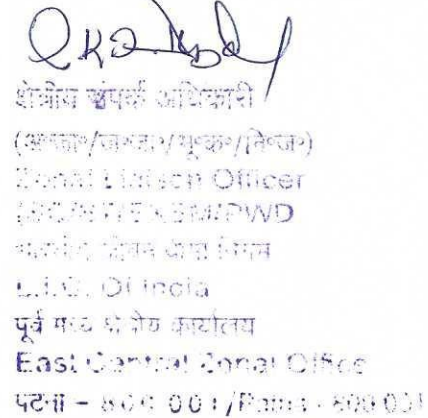 क्षेत्रीय संपर्क अधिकारी
(अ०जा०/ज०जा०/भू०क०/नि०ज०)
Zonal Liaison Officer
(SC/ST/EXSM/PWD
भारतीय जीवन बीमा निगम
L.I.C. Of India
पूर्व मध्य क्षेत्रीय कार्यालय
East Central Zonal Office
पटना - 800 001/Patna - 800 001